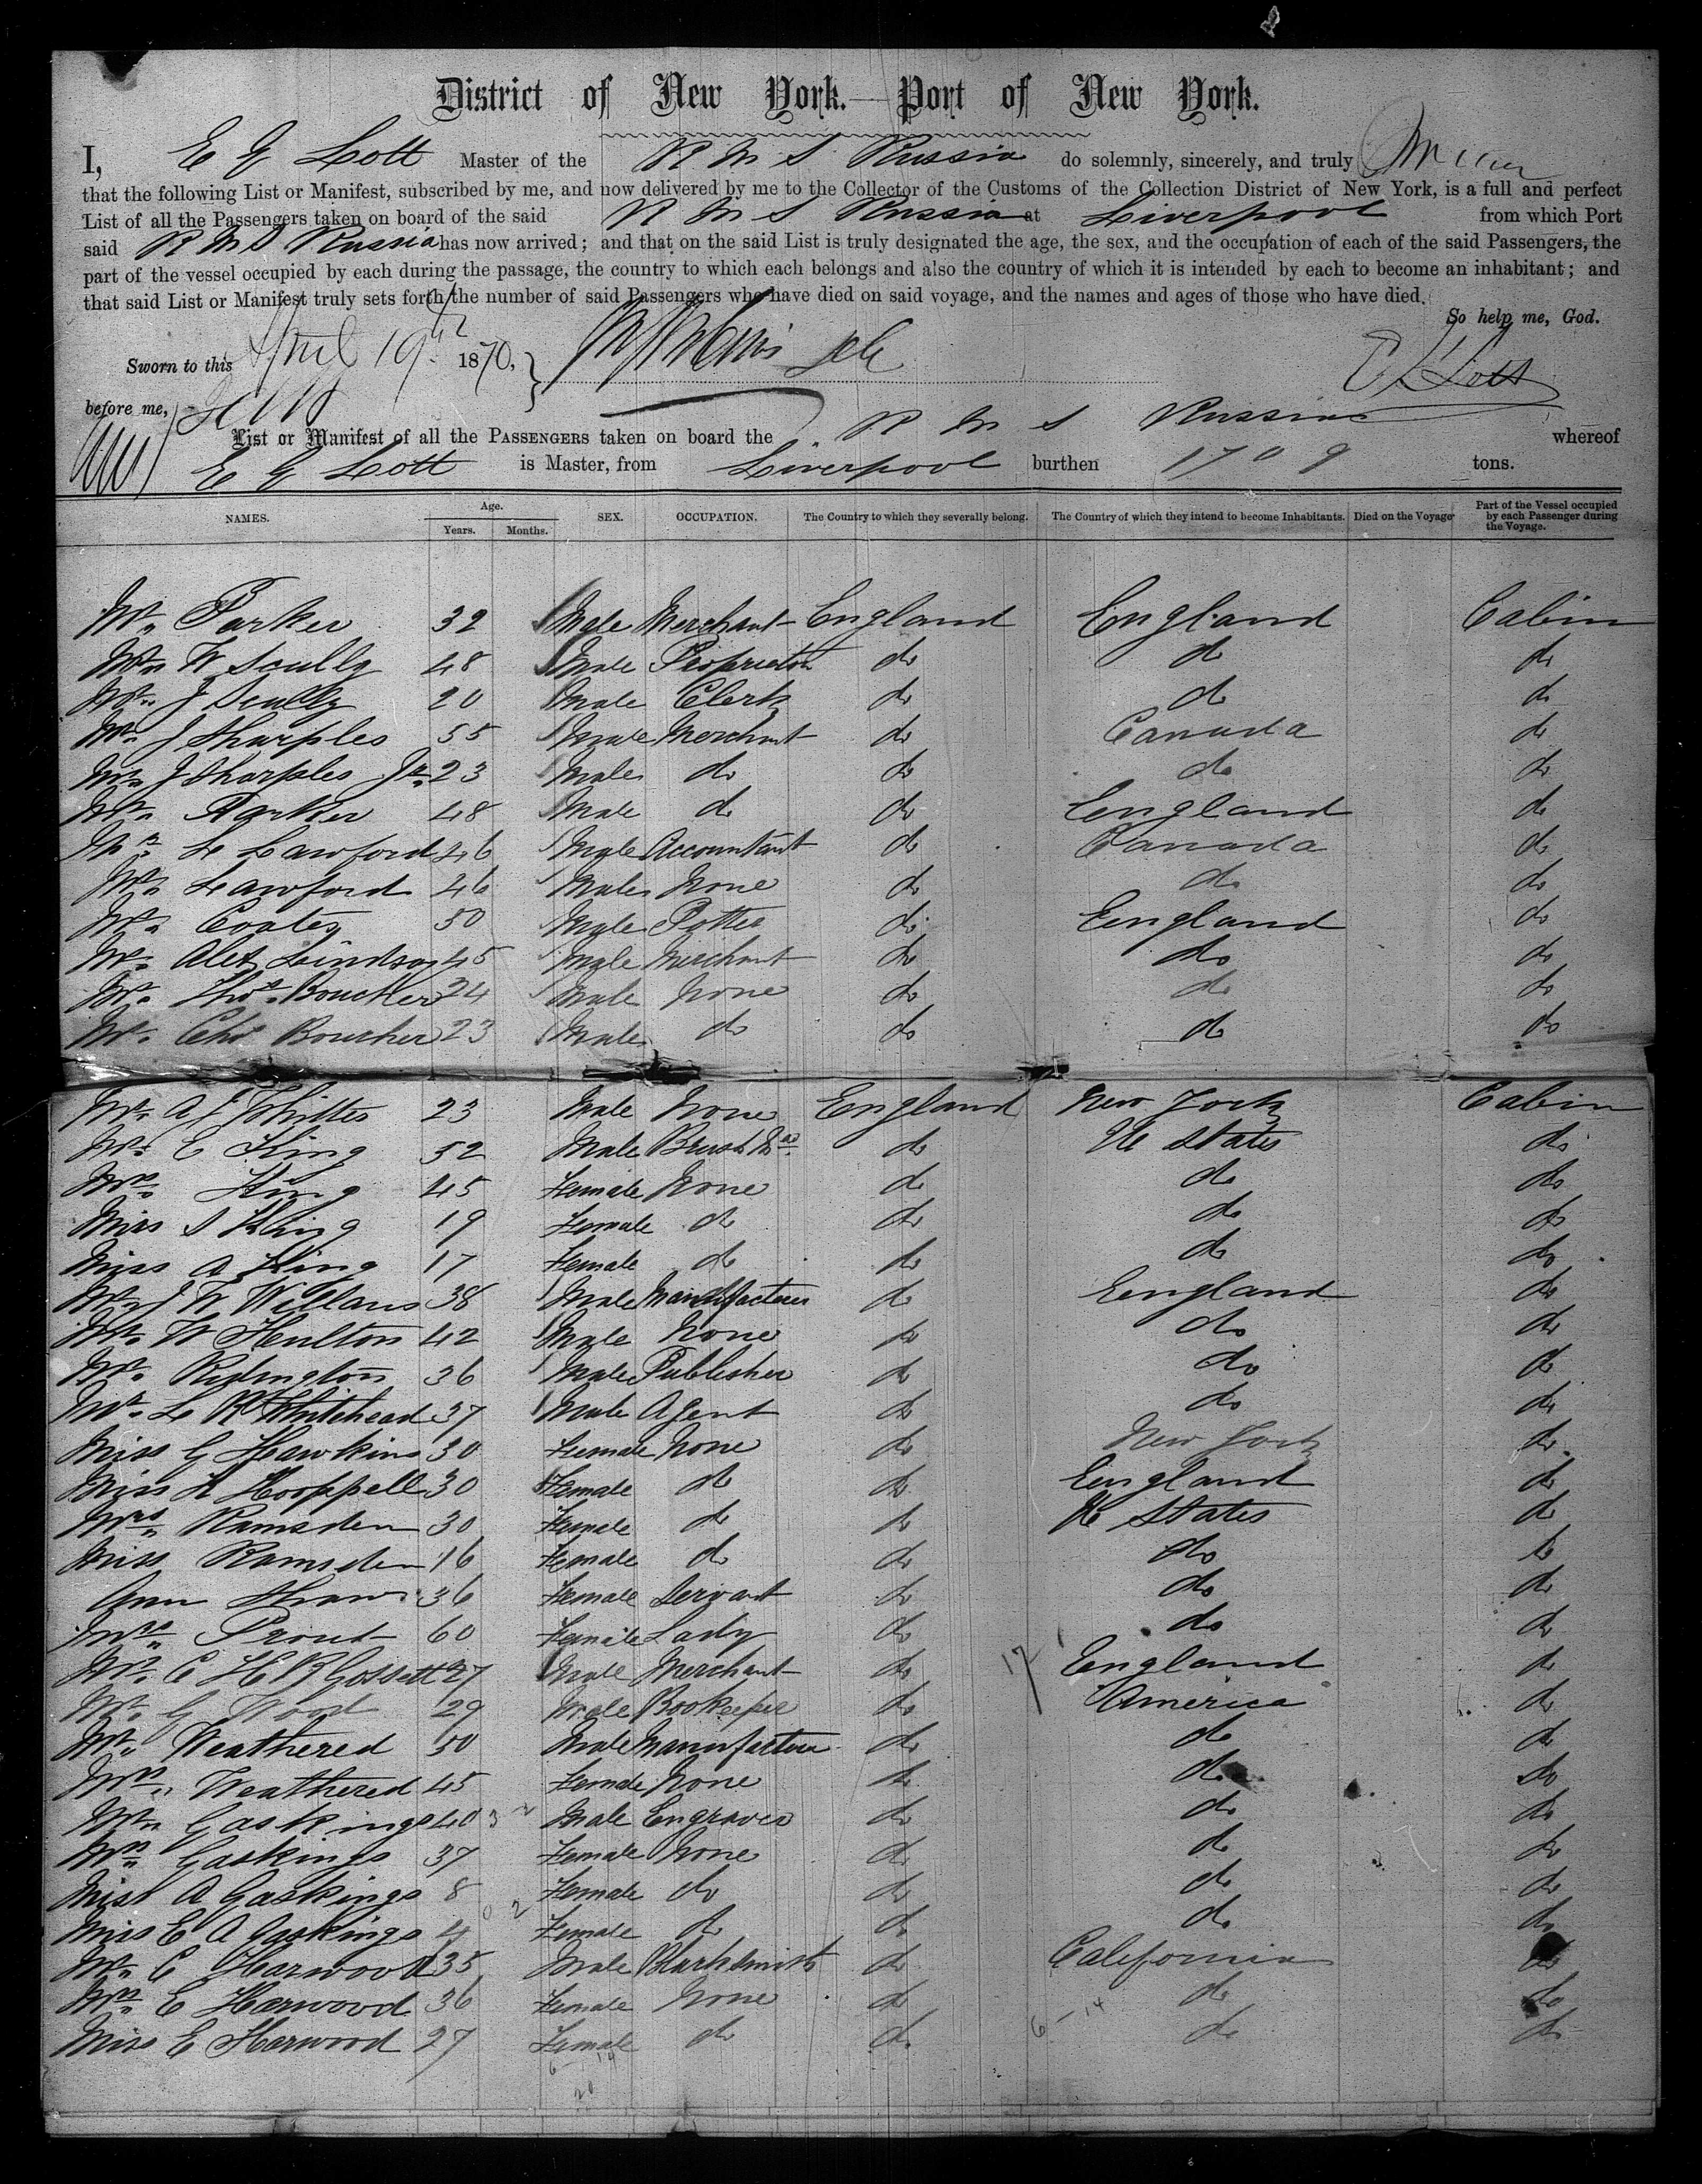 District of New York. Port of New York.
I, E G Lott Master of the R M S Russia do solemnly, sincerely, and truly
that the following List or Manifest, subscribed by me, and now delivered by me to the Collector of the Customs of the Collection District of New York, is a full and perfect
List of all the Passengers taken on board of the said R M S Russia at Liverpool from which Port
said R M S Russia has now arrived; and that on the said List is truly designated the age, the sex, and the occupation of each of the said Passengers, the
part of the vessel occupied by each during the passage, the country to which each belongs and also the country of which it is intended by each to become an inhabitant; and
that said List or Manifest truly sets forth the number of said Passengers who have died on said voyage, and the names and ages of those who have died.
So help me, God.
Sworn to this April 19th 1870,
E G Lott
before me,
List or Manifest of all the PASSENGERS taken on board the R M S Russia whereof
E G Lott is Master, from Liverpool burthen 1709 tons.
NAMES. Age. Years. Months. SEX. OCCUPATION. The Country to which they severally belong. The Country of which they intend to become Inhabitants. Died on the Voyage Part of the Vessel occupied by each Passenger during the Voyage.
Mr. Parker 32 Male Merchant England England Cabin
Mr. W Scully 48 Male Proprietor do do do
Mr. J Scully 20 Male Clerk do do do
Mr. J Sharples 55 Male Merchant do Canada do
Mr. J Sharples Jr. 23 Male do do do do
Mr. Parker 48 Male do do England do
Mr. L Lawford 46 Male Accountant do Canada do
Mr. Lawford 46 Male None do do do
Mr. Coates 50 Male Potter do England do
Mr. Alex Lindsay 45 Male Merchant do do do
Mr. Thos. Boucher 24 Male None do do do
Mr. Chs Boucher 23 Male do do do do
Mr. A J 23 Male None England New York Cabin
Mr. E King 52 Male Brush Mr. do U States do
Mrs. King 45 Female None do do do
Miss S King 19 Female do do do do
Miss A King 17 Female do do do do
Mr. J W Willans 38 Male Manufacturer do England do
Mr. W Hulton 42 Male None do do do
Mr. Ridington 36 Male Publisher do do do
Mr. L R Whitehead 37 Male Agent do do do
Miss G Hawkins 30 Female None do New York do
Miss A Hooppell 30 Female do do England do
Mrs. Ramsden 30 Female do do U States do
Miss Ramsden 16 Female do do do do
Ann Shaw 36 Female Servant do do do
Mrs. Prout 60 Female Lady do do do
Mr. C H R Gossett 27 Male Merchant do England do
Mr. G Wood 29 Male Bookeeper do America do
Mr. Weathered 50 Male Manufacturer do do do
Mrs. Weathered 45 Female None do do do
Mr. Gaskings 40 Male Engraver do do do
Mrs. Gaskings 37 Female None do do do
Miss A Gaskings 8 Female do do do do
Miss E A Gaskings 4 Female do do do do
Mr. C Harwood 35 Male Blacksmith do California do
Mrs. E Harwood 36 Female None do do do
Miss E Harwood 27 Female do do do do